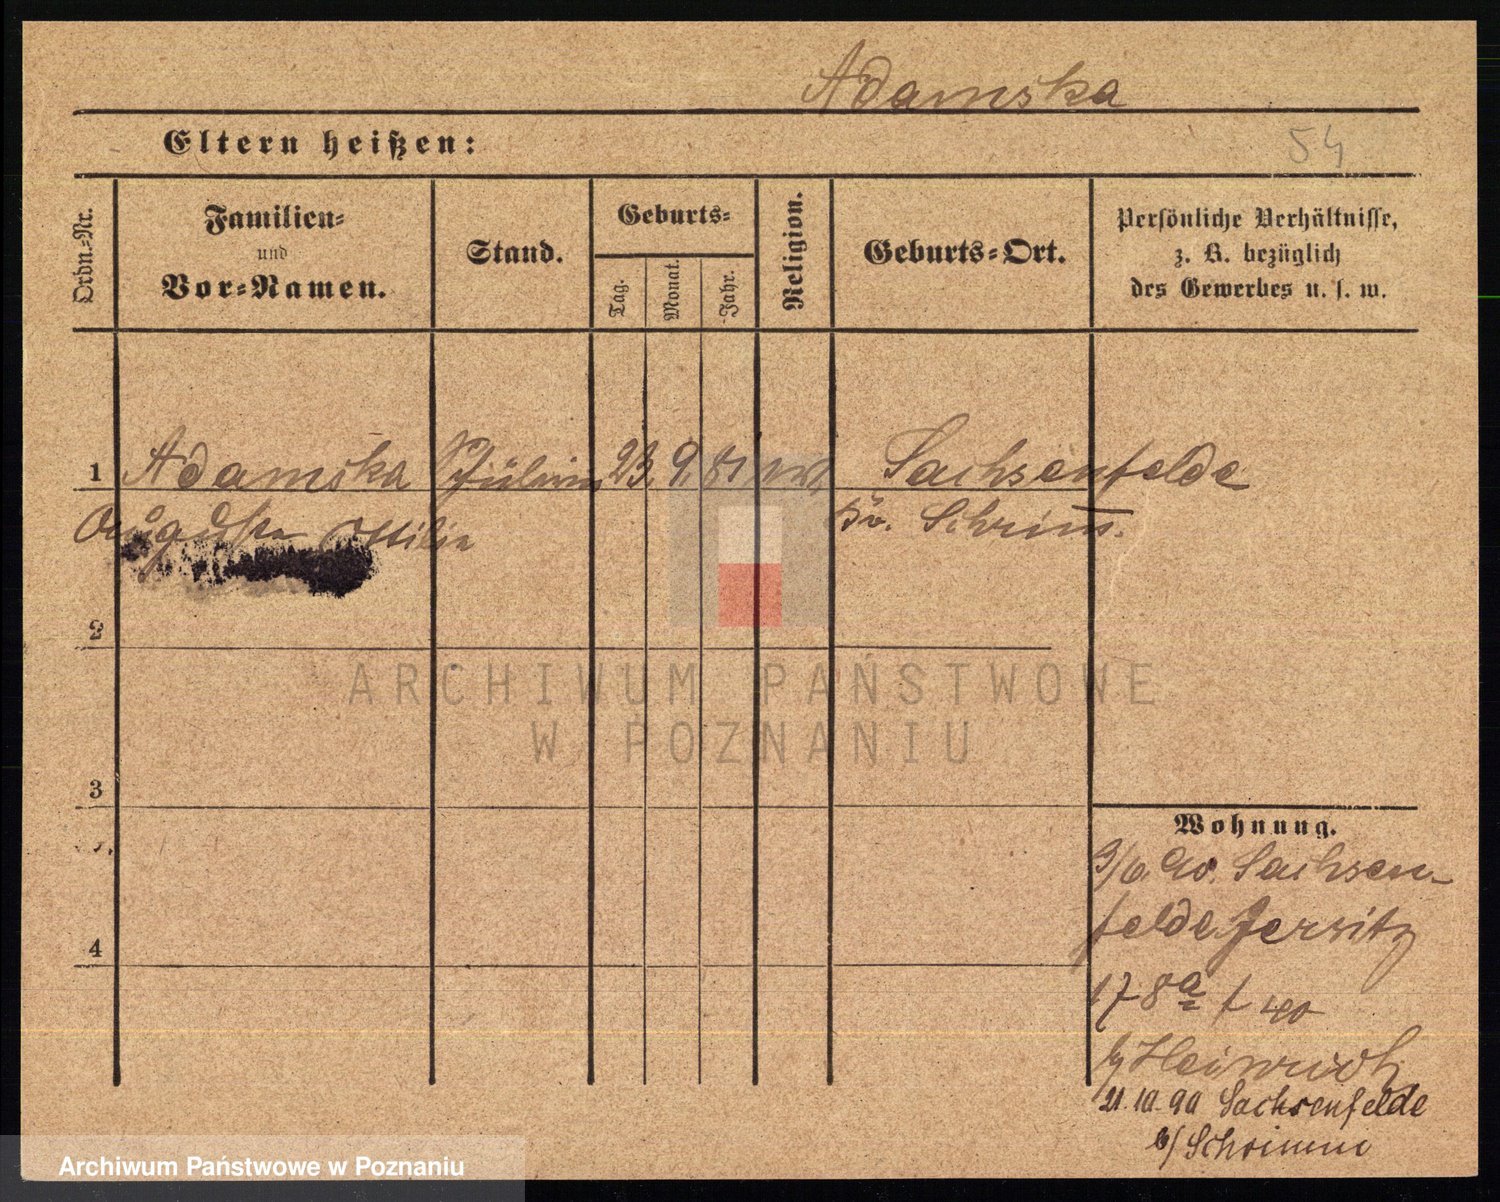 Adamska
Eltern heißen:
54
Ordn.=Nr.
Familien=
und
Vor=Namen.
Stand.
Geburts=
Tag.
Monat.
Jahr.
Religion.
Geburts=Ort.
Persönliche Verhältnisse,
z. B. bezüglich
des Gewerbes u. s. w.
1 Adamska 23. 9. 81 Sachsenfelde
Ottilie
Schrimm.
2
3
4
ARCHIWUM PAŃSTWOWE
W POZNANIU
Wohnung.
3/6. 90. Sachsen-
felde Jersitz
178a
b/ Heinrich
21.10.90 Sachsenfelde
b/ Schrimm
Archiwum Państwowe w Poznaniu